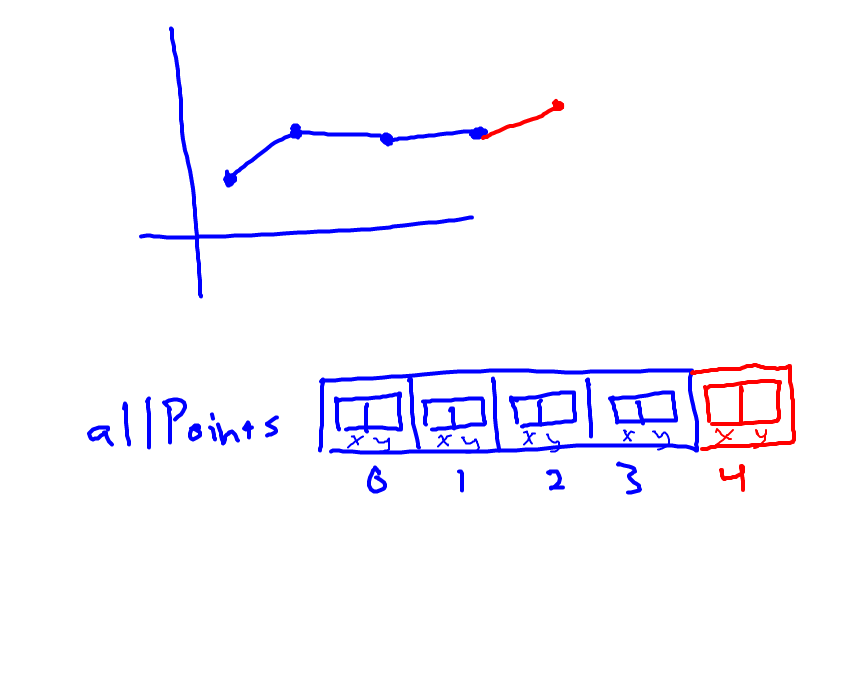 allPoints
x y x y x y x y x y
0 1 2 3 4